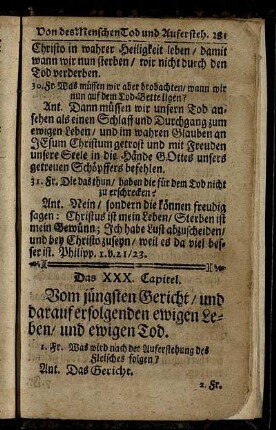 Von des Menschen Tod und Auferſteh. 281
Chriſto in wahrer Heiligkeit leben / damit
wann wir nun ſterben / wir nicht durch den
Tod verderben.
30. Fr. Was müſſen wir aber beobachten / wann wir
nun auf dem Tod-Bette ligen?
Ant. Dann müſſen wir unſern Tod an-
ſehen als einen Schlaff und Durchgang zum
ewigen Leben / und im wahren Glauben an
JEſum Chriſtum getroſt und mit Freuden
unſere Seele in die Hände GOttes unſers
getreuen Schöpffers befehlen.
31. Fr. Die das thun / haben die für dem Tod nicht
zu erſchrecken?
Ant. Nein / ſondern die können freudig
ſagen: Chriſtus iſt mein Leben / Sterben iſt
mein Gewünn; Ich habe Luſt abzuſcheiden /
und bey Chriſto zuſeyn / weil es da viel beſ-
ſer iſt. Philipp. 1. v. 21/23.
Das XXX. Capitel.
Vom jüngſten Gericht / und
darauf erfolgenden ewigen Le-
ben / und ewigen Tod.
1. Fr. Was wird nach der Auferſtehung des
Fleiſches folgen?
Ant. Das Gericht.
2. Fr.